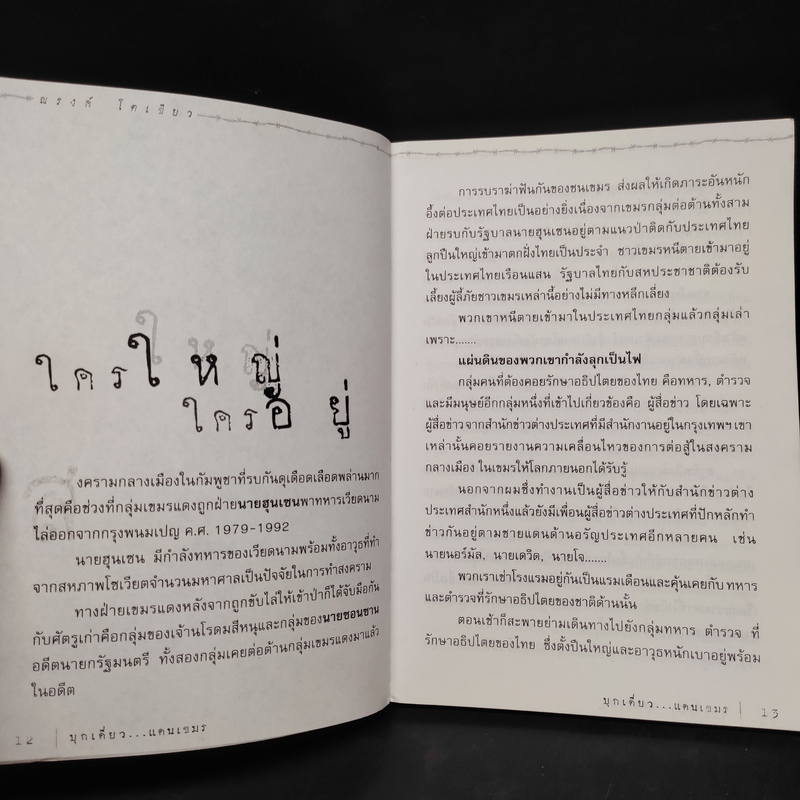 ณรงค์ โตเขียว
ใครใหญ่
ใครอยู่
สงครามกลางเมืองในกัมพูชาที่รบกันดุเดือดเลือดพล่านมาก
ที่สุดคือช่วงที่กลุ่มเขมรแดงถูกฝ่ายนายฮุนเซนพาทหารเวียดนาม
ไล่ออกจากกรุงพนมเปญ ค.ศ. 1979-1992
นายฮุนเซน มีกำลังทหารของเวียดนามพร้อมทั้งอาวุธที่ทำ
จากสหภาพโซเวียตจำนวนมหาศาลเป็นปัจจัยในการทำสงคราม
ทางฝ่ายเขมรแดงหลังจากถูกขับไล่ให้เข้าป่าก็ได้จับมือกัน
กับศัตรูเก่าคือกลุ่มของเจ้านโรดมสีหนุและกลุ่มของนายซอนซาน
อดีตนายกรัฐมนตรี ทั้งสองกลุ่มเคยต่อต้านกลุ่มเขมรแดงมาแล้ว
ในอดีต
12 | บุกเดี่ยว...แดนเขมร
การรบราฆ่าฟันกันของชนเขมร ส่งผลให้เกิดภาระอันหนัก
อึ้งต่อประเทศไทยเป็นอย่างยิ่งเนื่องจากเขมรกลุ่มต่อต้านทั้งสาม
ฝ่ายรบกับรัฐบาลนายฮุนเซนอยู่ตามแนวป่าติดกับประเทศไทย
ลูกปืนใหญ่เข้ามาตกฝั่งไทยเป็นประจำ ชาวเขมรหนีตายเข้ามาอยู่
ในประเทศไทยเรือนแสน รัฐบาลไทยกับสหประชาชาติต้องรับ
เลี้ยงผู้ลี้ภัยชาวเขมรเหล่านี้อย่างไม่มีทางหลีกเลี่ยง
พวกเขาหนีตายเข้ามาในประเทศไทยกลุ่มแล้วกลุ่มเล่า
เพราะ.......
แผ่นดินของพวกเขากำลังลุกเป็นไฟ
กลุ่มคนที่ต้องคอยรักษาอธิปไตยของไทย คือทหาร, ตำรวจ
และมีมนุษย์อีกกลุ่มหนึ่งที่เข้าไปเกี่ยวข้องคือ ผู้สื่อข่าว โดยเฉพาะ
ผู้สื่อข่าวจากสำนักข่าวต่างประเทศที่มีสำนักงานอยู่ในกรุงเทพฯ เขา
เหล่านั้นคอยรายงานความเคลื่อนไหวของการต่อสู้ในสงคราม
กลางเมือง ในเขมรให้โลกภายนอกได้รับรู้
นอกจากผมซึ่งทำงานเป็นผู้สื่อข่าวให้กับสำนักข่าวต่าง
ประเทศสำนักหนึ่งแล้วยังมีเพื่อนผู้สื่อข่าวต่างประเทศที่ปักหลักทำ
ข่าวกันอยู่ตามชายแดนด้านอรัญประเทศอีกหลายคน เช่น
นายนอร์มัล, นายเดวิด, นายโจ.......
พวกเราเช่าโรงแรมอยู่กันเป็นแรมเดือนและคุ้นเคยกับ ทหาร
และตำรวจที่รักษาอธิปไตยของชาติด้านนั้น
ตอนเช้าก็สะพายย่ามเดินทางไปยังกลุ่มทหาร ตำรวจ ที่
รักษาอธิปไตยของไทย ซึ่งตั้งปืนใหญ่และอาวุธหนักเบาอยู่พร้อม
บุกเดี่ยว...แดนเขมร | 13